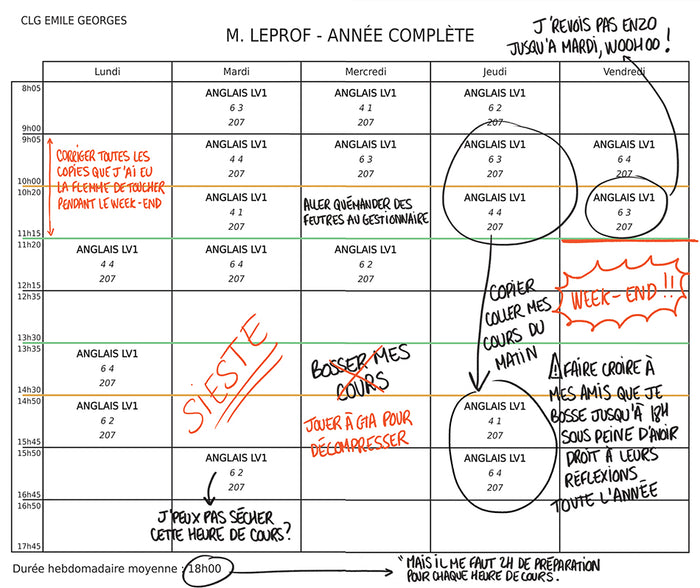 CLG EMILE GEORGES
M. LEPROF - ANNÉE COMPLÈTE
J'REVOIS PAS ENZO
JUSQU'A MARDI, WOOHOO !
Lundi
Mardi
Mercredi
Jeudi
Vendredi
8h05
ANGLAIS LV1
6 3
207
ANGLAIS LV1
4 1
207
ANGLAIS LV1
6 2
207
9h00
9h05
CORRIGER TOUTES LES
COPIES QUE J'AI EU
LA FLEMME DE TOUCHER
PENDANT LE WEEK-END
ANGLAIS LV1
4 4
207
ANGLAIS LV1
6 3
207
ANGLAIS LV1
6 3
207
ANGLAIS LV1
6 4
207
10h00
10h20
ANGLAIS LV1
4 1
207
ALLER QUÉMANDER DES
FEUTRES AU GESTIONNAIRE
ANGLAIS LV1
4 4
207
ANGLAIS LV1
6 3
207
11h15
11h20
ANGLAIS LV1
4 4
207
ANGLAIS LV1
6 4
207
ANGLAIS LV1
6 2
207
COPIER
COLLER MES
COURS DU
MATIN
WEEK-END !!
12h15
12h35
13h30
13h35
ANGLAIS LV1
6 4
207
SIESTE
BOSSER MES
COURS
JOUER À GTA POUR
DÉCOMPRESSER
⚠ FAIRE CROIRE À
MES AMIS QUE JE
BOSSE JUSQU'À 18H
SOUS PEINE D'AVOIR
DROIT À LEURS
RÉFLEXIONS
TOUTE L'ANNÉE
14h30
14h50
ANGLAIS LV1
6 2
207
ANGLAIS LV1
4 1
207
15h45
15h50
ANGLAIS LV1
6 2
207
ANGLAIS LV1
6 4
207
16h45
16h50
J'PEUX PAS SÉCHER
CETTE HEURE DE COURS?
17h45
Durée hebdomadaire moyenne : 18h00
"MAIS IL ME FAUT 2H DE PRÉPARATION
POUR CHAQUE HEURE DE COURS.